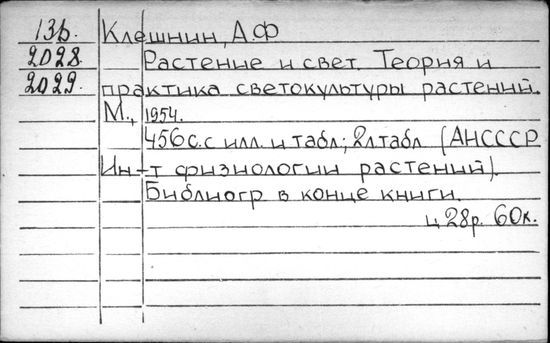 13б. Клешнин, А.Ф
2028. Растение и свет. Теория и
2029. практика светокультуры растений.
М., 1954.
456 с. с илл. и табл; 2л табл (АНСССР
Ин-т физиологии растений).
Библиогр в конце книги.
ц 28р. 60к.